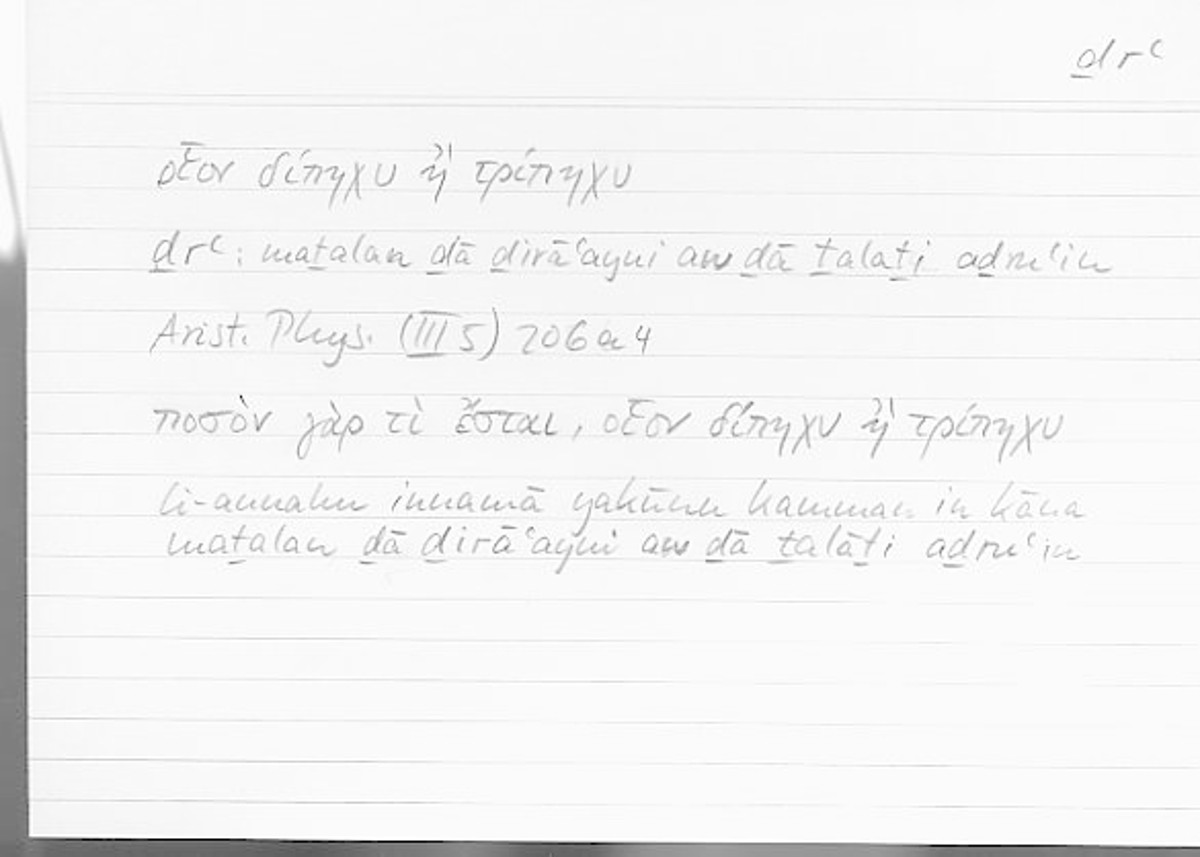 ḏrʿ
οἷον δίπηχυ ἢ τρίπηχυ
ḏrʿ: maṯalan ḏā ḏirāʿayni aw ḏā ṯalaṯi aḏruʿin
Arist. Phys. (III 5) 206 a 4
ποσὸν γὰρ τὶ ἔσται, οἷον δίπηχυ ἢ τρίπηχυ
li-annahu innamā yakūnu kamman in kāna
maṯalan ḏā ḏirāʿayni aw ḏā ṯalāṯi aḏruʿin